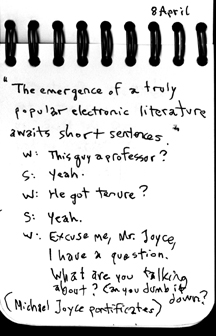 8 April
"The emergence of a truly
popular electronic literature
awaits short sentences."
W: This guy a professor?
S: Yeah.
W: He got tenure?
S: Yeah.
W: Excuse me, Mr. Joyce,
I have a question.
What are you talking
about? Can you dumb it
down?
(Michael Joyce pontificates)